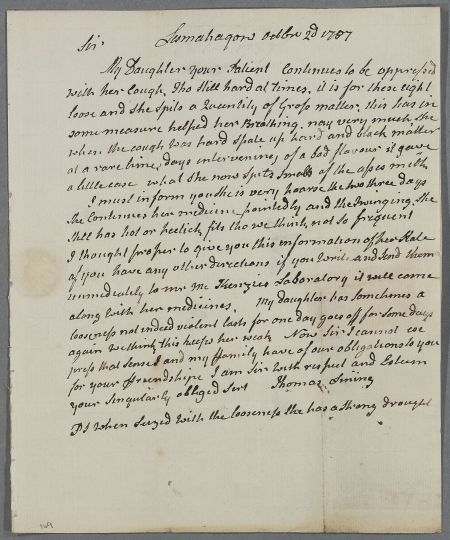 Lesmahagow Octbre 2d 1787
Sir
My Daughter your Patient Continues to be oppressed
with her Cough, Tho Still hard at times, it is for these eight
loose and She Spits a Quantity of Gross matter, this has in
some measure helped her Breathing. nay very much She
when the cough was hard Spate up hard and black matter
at a rare time, days intervening of a bad flavour it gave
a little ease what she now Spits Smells of the asses milk
I must inform you she is very hoarse the two three days
She Continues her medicine pointedly and the Swinging. She
Still has hot or hectick fits tho we think not so frequent
I thought proper to give you this information of her State
if you have any other directions if you Write and Send them
immediately to Mr Mc Laboratory it will come
along with her medicines. My daughter has Sometimes a
looseness not indeed violent lasts for one day goes off for Some days
again we think this keeps her weak Now Sir I cannot ex
press that Sense I and my family have of our obligations to you
for your Friendshipe I am Sir with respect and Esteem
your Singularly obliged Sert Thomas Lining
PS When Seized with the looseness She has a Strong drought
149